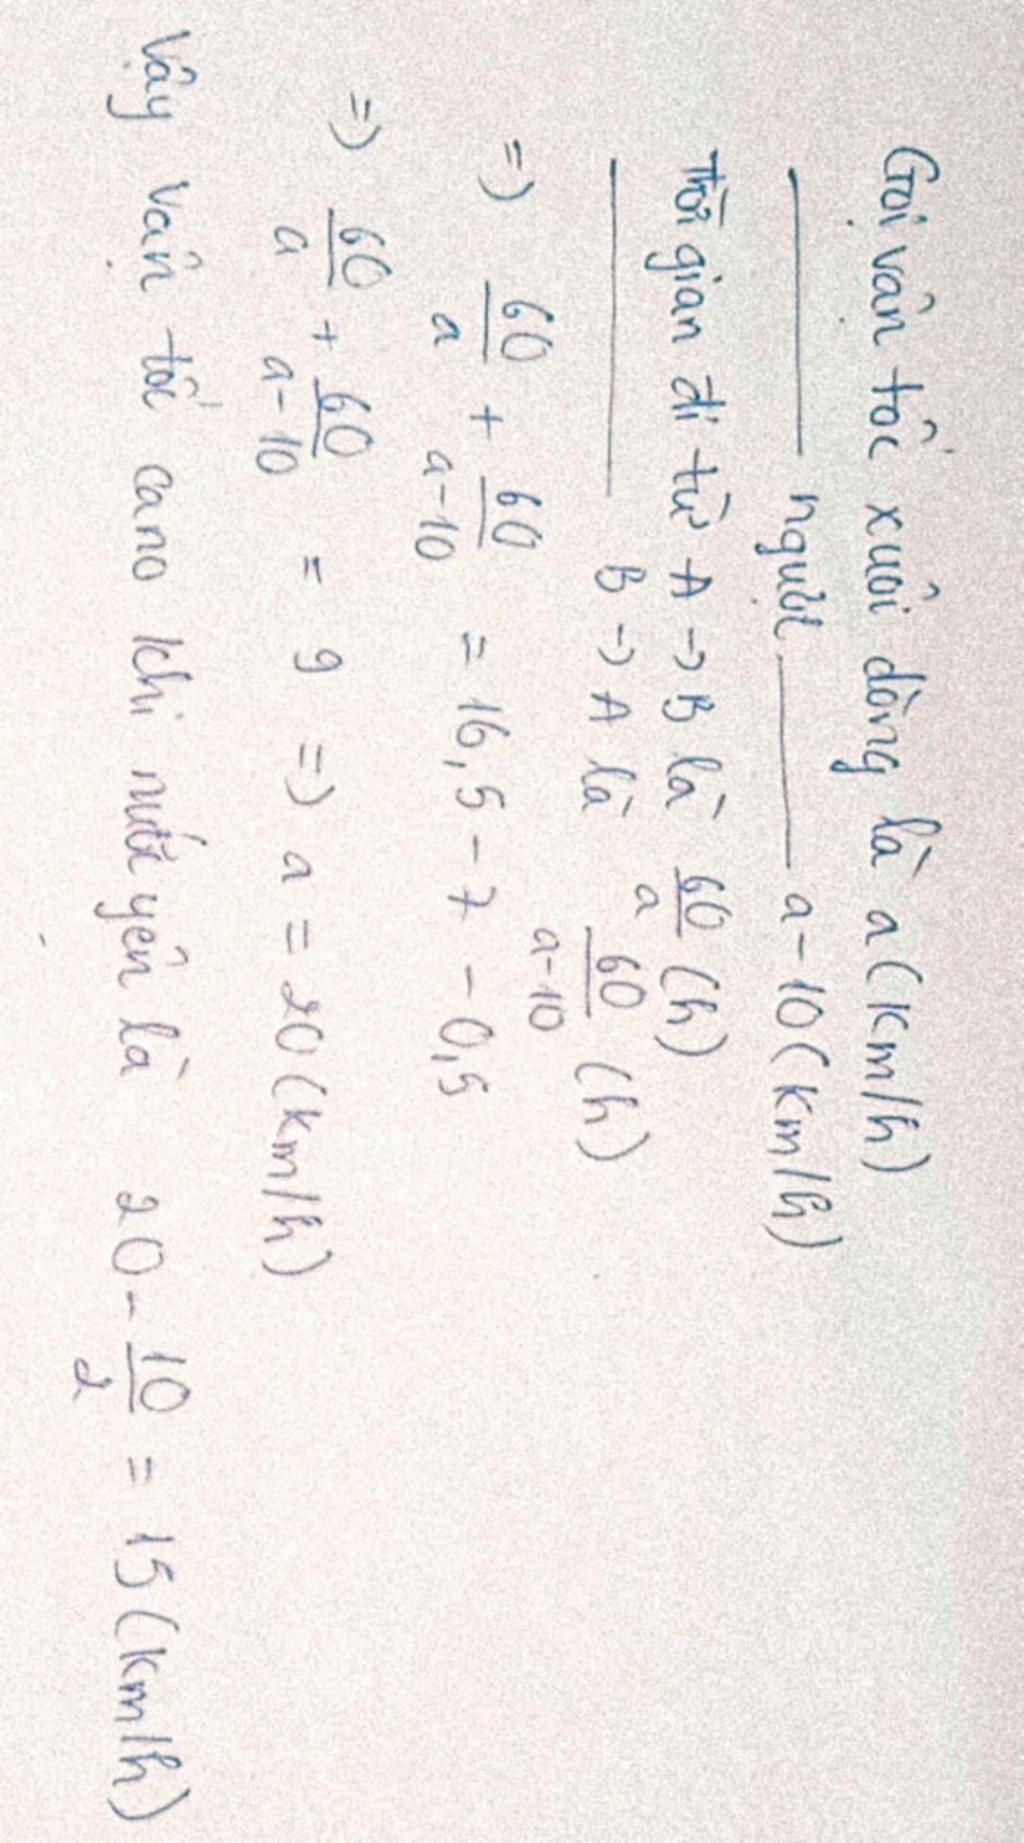 Gọi vận tốc xuôi dòng là a(km/h)
—— ngược —— a-10(km/h)
Thời gian đi từ A → B là 60/a (h)
—— B → A là 60/a-10 (h)
=) 60/a + 60/a-10 = 16,5 - 7 - 0,5
=) 60/a + 60/a-10 = 9 =) a = 20(km/h)
Vậy vận tốc cano khi nước yên là 20 - 10/2 = 15(km/h)